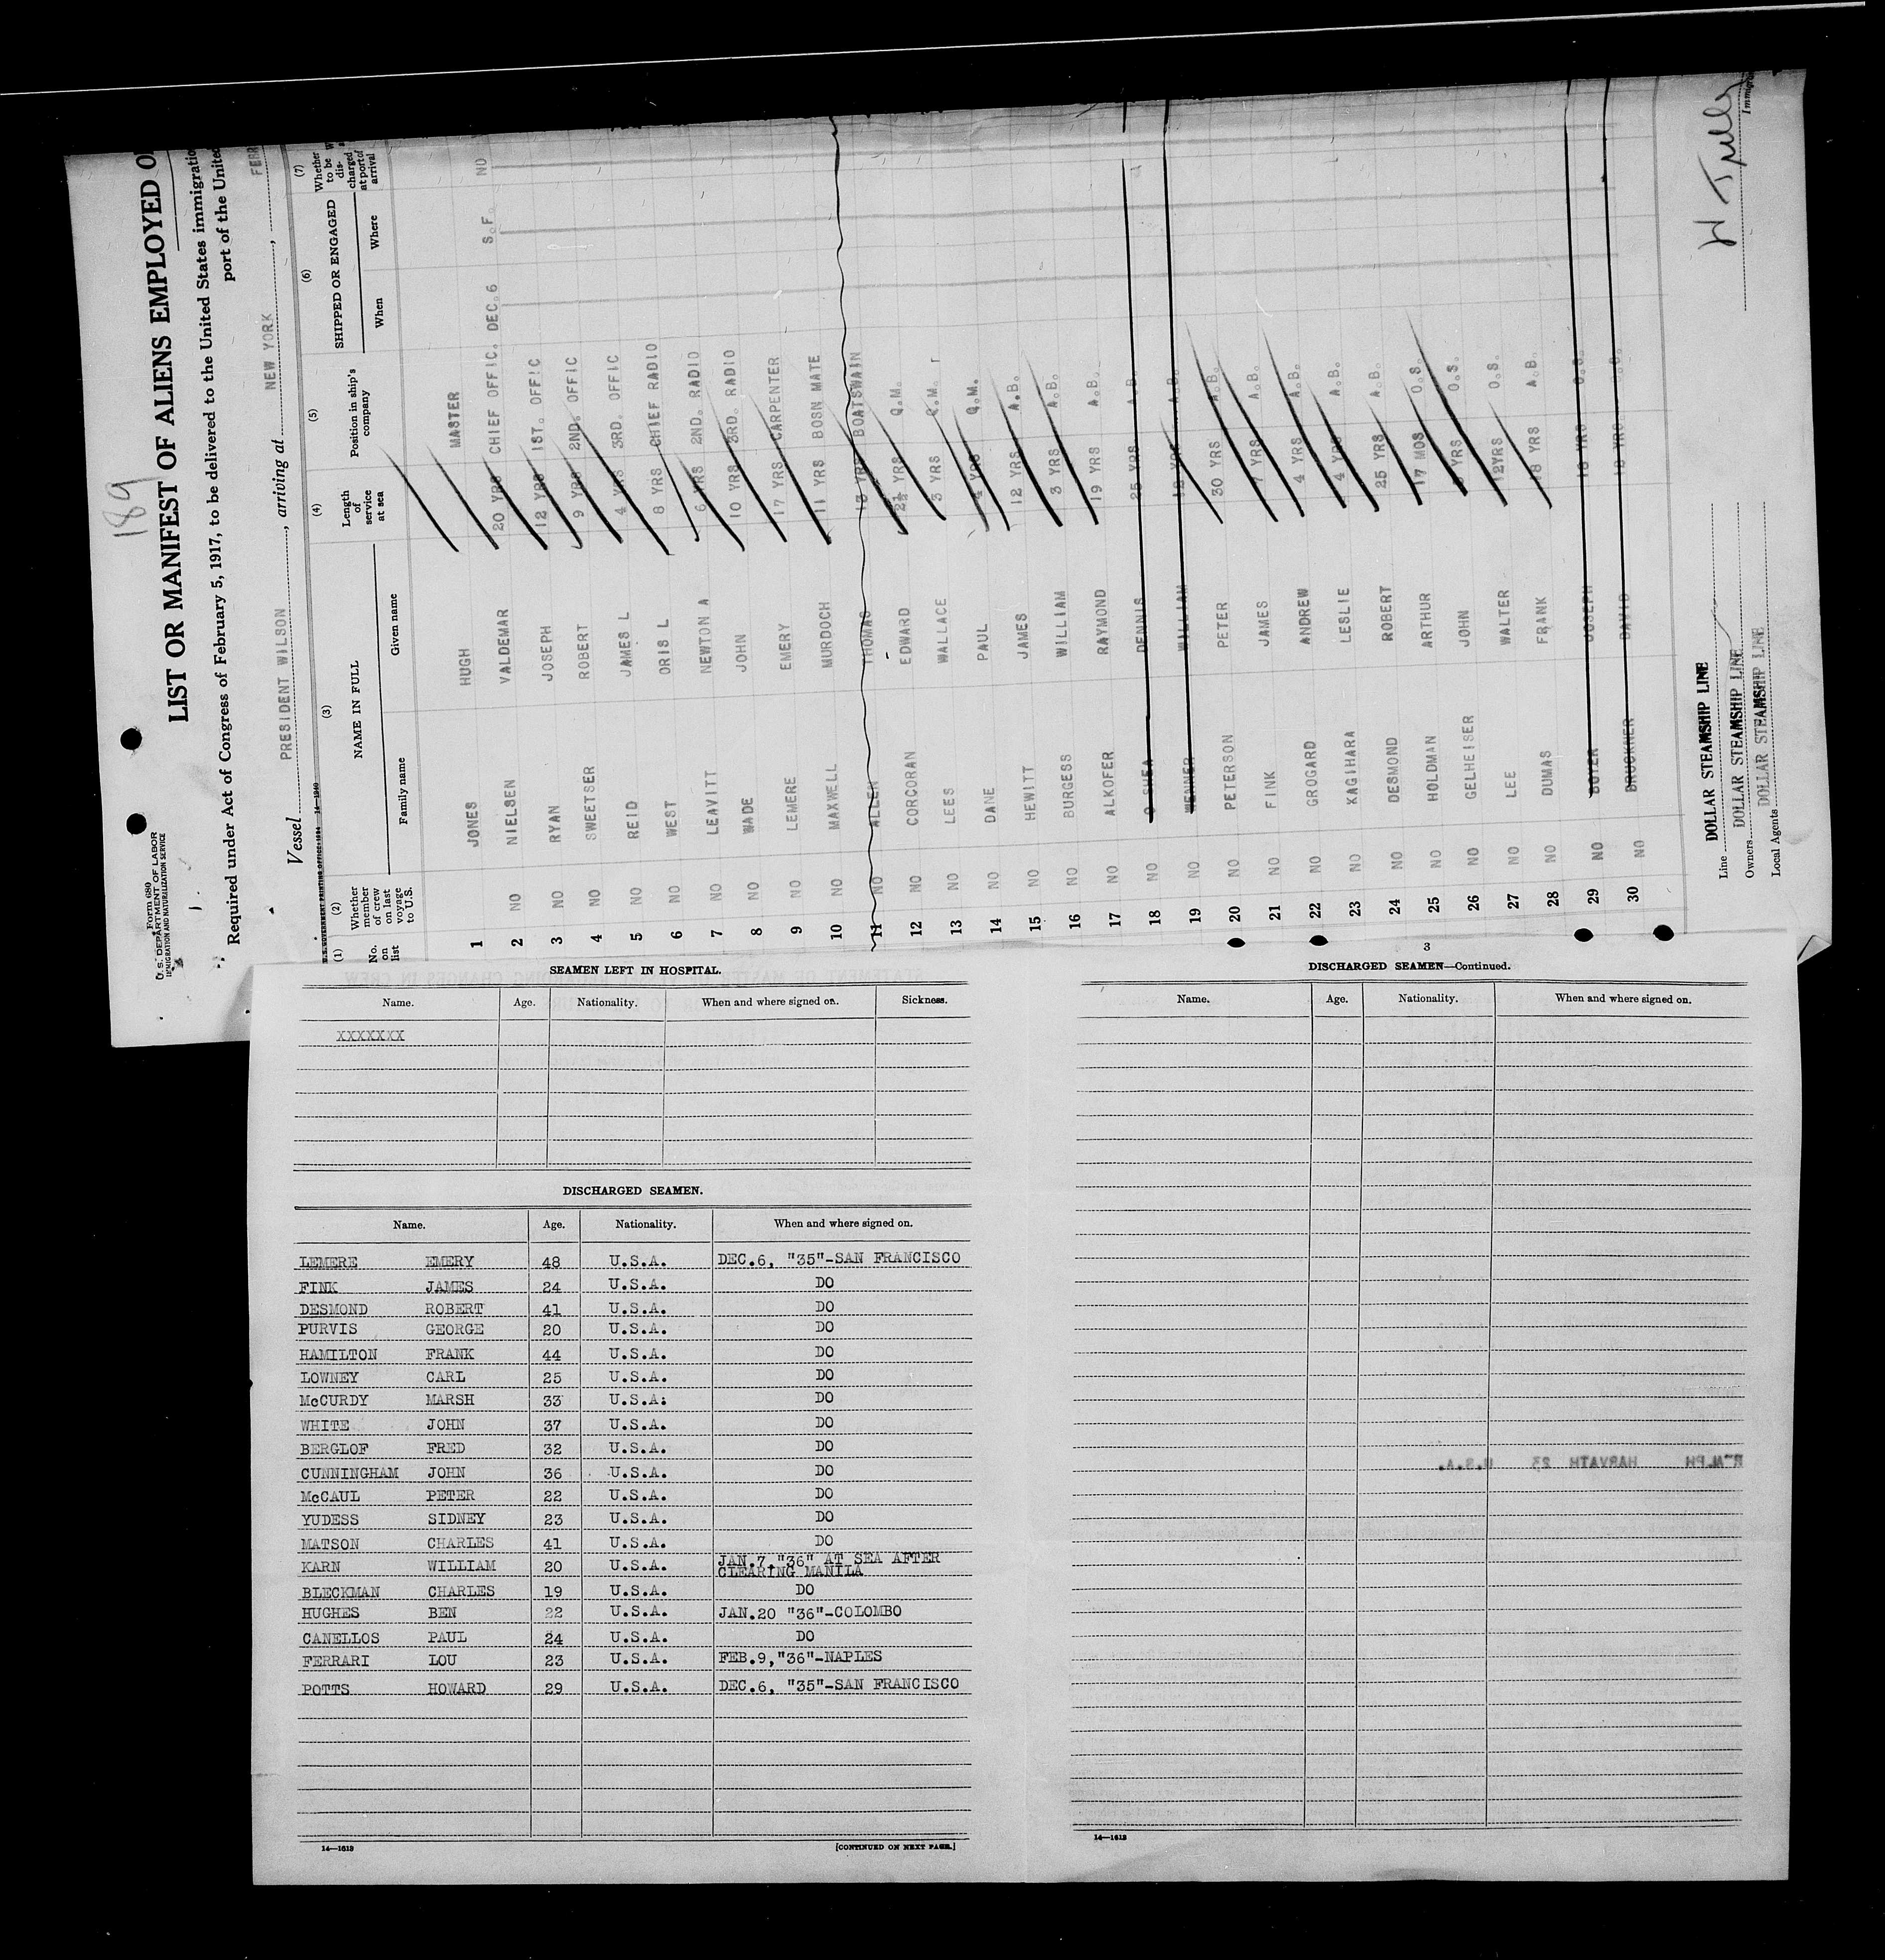 189
Form 689
U.S. DEPARTMENT OF LABOR
IMMIGRATION AND NATURALIZATION SERVICE
LIST OR MANIFEST OF ALIENS EMPLOYED O
Required under Act of Congress of February 5, 1917, to be delivered to the United States immigratio
port of the United
Vessel PRESIDENT WILSON, arriving at NEW YORK, FEBR
(1) No. on list
(2) Whether member of crew on last voyage to U.S.
(3) NAME IN FULL
Family name Given name
(4) Length of service at sea
(5) Position in ship's company
(6) SHIPPED OR ENGAGED
When Where
(7) Whether to be discharged at port of arrival
1 JONES HUGH MASTER
2 NO NIELSEN VALDEMAR 20 YRS CHIEF OFFIC. DEC.6 S.F. NO
3 NO RYAN JOSEPH 12 YRS 1ST. OFFIC
4 NO SWEETSER ROBERT 9 YRS 2ND. OFFIC
5 NO REID JAMES L 4 YRS 3RD. OFFIC
6 NO WEST ORIS L 8 YRS CHIEF RADIO
7 NO LEAVITT NEWTON A 6 YRS 2ND. RADIO
8 NO WADE JOHN 10 YRS 3RD. RADIO
9 NO LEMERE EMERY 17 YRS CARPENTER
10 NO MAXWELL MURDOCH 11 YRS BOSN MATE
11 NO ALLEN THOMAS 13 YRS BOATSWAIN
12 NO CORCORAN EDWARD 2½ YRS Q.M.
13 NO LEES WALLACE 3 YRS Q.M.
14 NO DANE PAUL 4 YRS Q.M.
15 NO HEWITT JAMES 12 YRS A.B.
16 NO BURGESS WILLIAM 3 YRS A.B.
17 NO ALKOFER RAYMOND 19 YRS A.B.
18 NO O SHEA DENNIS 25 YRS A.B.
19 NO WENNER WILLIAM YRS A.B.
20 NO PETERSON PETER 30 YRS A.B.
21 NO FINK JAMES 7 YRS A.B.
22 NO GROGARD ANDREW 4 YRS A.B.
23 NO KAGIHARA LESLIE 4 YRS A.B.
24 NO DESMOND ROBERT 25 YRS A.B.
25 NO HOLDMAN ARTHUR 17 MOS O.S.
26 NO GELHEISER JOHN YRS O.S.
27 NO LEE WALTER 12YRS O.S.
28 NO DUMAS FRANK 18 YRS A.B.
29 NO BOYER JOSEPH YRS O.S.
30 NO BRUCKNER DAVID YRS O.S.
Line DOLLAR STEAMSHIP LINE
Owners DOLLAR STEAMSHIP LINE
Local Agents DOLLAR STEAMSHIP LINE
Immigr
SEAMEN LEFT IN HOSPITAL.
Name. Age. Nationality. When and where signed on. Sickness.
XXXXXXX
DISCHARGED SEAMEN.
Name. Age. Nationality. When and where signed on.
LEMERE EMERY 48 U.S.A. DEC.6, "35"-SAN FRANCISCO
FINK JAMES 24 U.S.A. DO
DESMOND ROBERT 41 U.S.A. DO
PURVIS GEORGE 20 U.S.A. DO
HAMILTON FRANK 44 U.S.A. DO
LOWNEY CARL 25 U.S.A. DO
McCURDY MARSH 33 U.S.A: DO
WHITE JOHN 37 U.S.A. DO
BERGLOF FRED 32 U.S.A. DO
CUNNINGHAM JOHN 36 U.S.A. DO
McCAUL PETER 22 U.S.A. DO
YUDESS SIDNEY 23 U.S.A. DO
MATSON CHARLES 41 U.S.A. DO
KARN WILLIAM 20 U.S.A. JAN.7,"36" AT SEA AFTER
CLEARING MANILA
BLECKMAN CHARLES 19 U.S.A. DO
HUGHES BEN 22 U.S.A. JAN.20 "36"-COLOMBO
CANELLOS PAUL 24 U.S.A. DO
FERRARI LOU 23 U.S.A. FEB.9,"36"-NAPLES
POTTS HOWARD 29 U.S.A. DEC.6, "35"-SAN FRANCISCO
14—1613
[CONTINUED ON NEXT PAGE.]
3
DISCHARGED SEAMEN—Continued.
Name. Age. Nationality. When and where signed on.
HARVATH 23 U.S.A.
14—1613